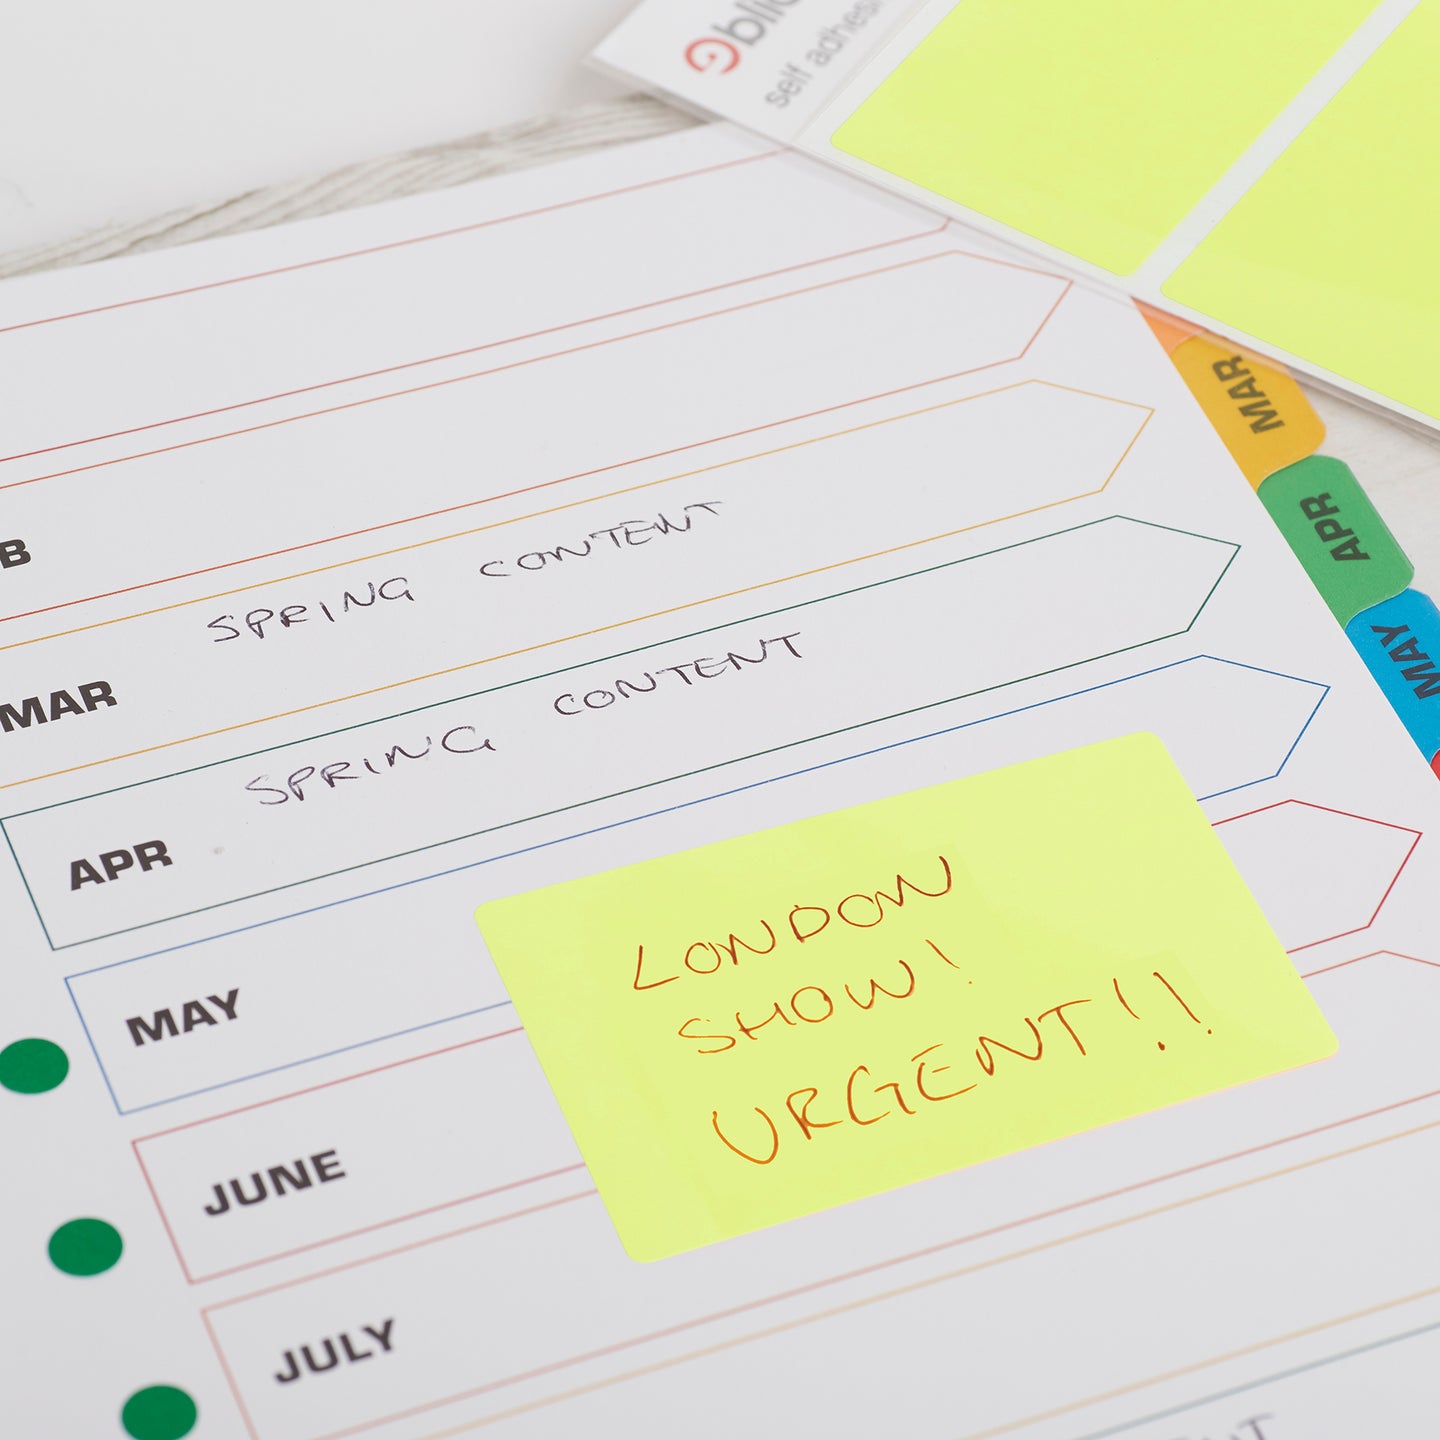 self
MAR
APR
MAY
B
SPRING CONTENT
MAR
SPRING CONTENT
APR
MAY
LONDON
SHOW!
URGENT!!
JUNE
JULY